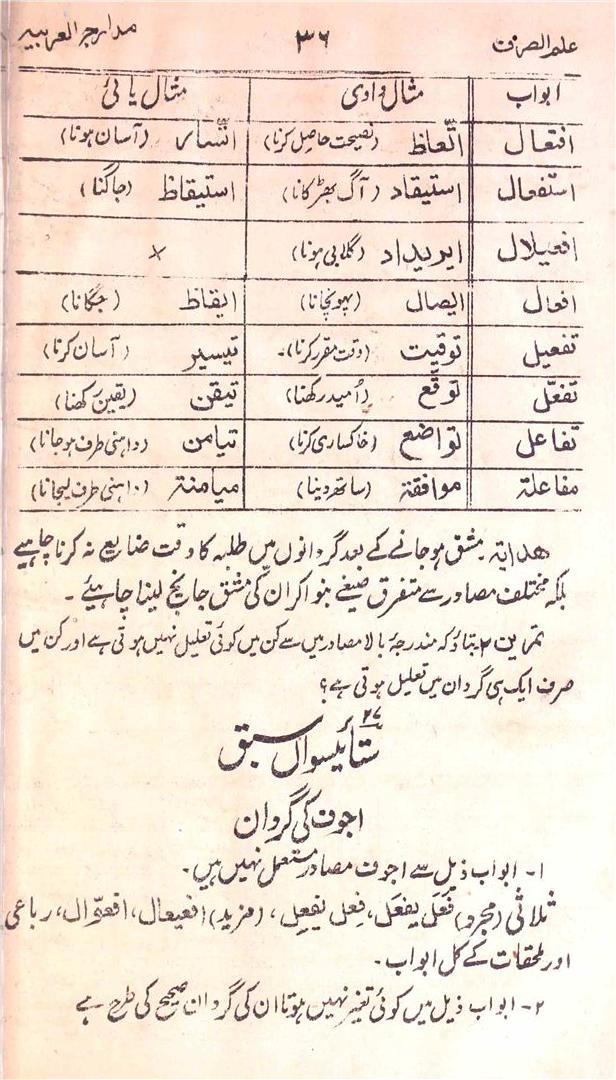 علم الصرف ۳۶ مدارج العربیہ
ابواب مثال وادی مثال یائی
افتعال اتّعاظ (نصیحت حاصل کرنا) اتّسار (آسان ہونا)
استفعال استیقاد (آگ بھڑکانا) استیقاظ (جاگنا)
افعیلال ایریداد (گلابی ہونا) ×
افعال ایصال (پہونچانا) ایقاظ (جگانا)
تفعیل توقیت (وقت مقرر کرنا)۔ تیسیر (آسان کرنا)
تفعّل توقّع (اُمید رکھنا) تیقن (یقین رکھنا)
تفاعل تواضع (خاکساری کرنا) تیامن (داہنی طرف ہو جانا)
مفاعلة موافقة (ساتھ دینا) میامنة (داہنی طرف لیجانا)
ھدایة۔ مشق ہو جانے کے بعد گردانوں میں طلبہ کا وقت ضایع نہ کرنا چاہیے
بلکہ مختلف مصادر سے متفرق صیغے بنوا کر ان کی مشق جانچ لینا چاہیئے۔
تمرین ۲۔ بتاؤ کہ مندرجۂ بالا مصادر میں سے کن میں کوئی تعلیل نہیں ہوتی ہے اور کن میں
صرف ایک ہی گردان میں تعلیل ہوتی ہے؟
۲۷
ستائیسواں سبق
اجوف کی گردان
۱۔ ابواب ذیل سے اجوف مصادر مستعمل نہیں ہیں۔
ثلاثی (مجرد) فَعَلَ یفعَل، فِعل یفعِل، (مزید) افعیعال، افعوّال، رباعی
اور ملحقات کے کل ابواب۔
۲۔ ابواب ذیل میں کوئی تغیر نہیں ہوتا ان کی گردان صحیح کی طرح ہے